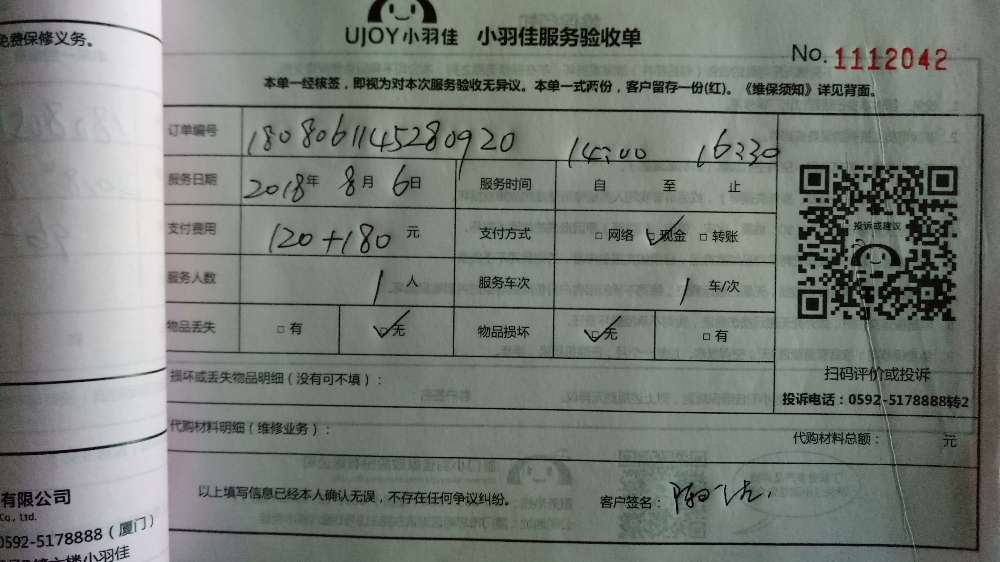 免费保修义务。
UJOY小羽佳 小羽佳服务验收单
No. 1112042
本单一经核签，即视为对本次服务验收无异议。本单一式两份，客户留存一份(红)。《维保须知》详见背面。
订单编号 1808061145280920 14:00 16:30
服务日期 2018年 8月 6日 服务时间 自 至 止
支付费用 120+180 元 支付方式 □ 网络 ☑ 现金 □ 转账
服务人数 1 人 服务车次 1 车/次
物品丢失 □ 有 ☑ 无 物品损坏 ☑ 无 □ 有
投诉或建议
扫码评价或投诉
投诉电话：0592-5178888转2
损坏或丢失物品明细（没有可不填）：
代购材料明细（维修业务）： 代购材料总额： 元
以上填写信息已经本人确认无误，不存在任何争议纠纷。 客户签名：
有限公司
Co., Ltd.
0592-5178888（厦门）
楼小羽佳